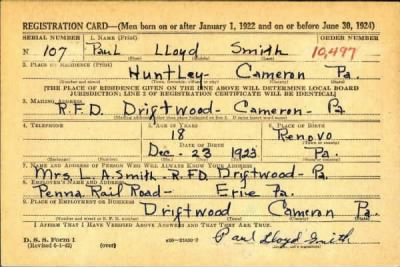 REGISTRATION CARD—(Men born on or after January 1, 1922 and on or before June 30, 1924)
SERIAL NUMBER 1. NAME (Print) ORDER NUMBER
N 107 Paul Lloyd Smith 10,497
(First) (Middle) (Last)
2. PLACE OF RESIDENCE (Print)
Huntley- Cameron Pa.
(Number and street) (Town, township, village, or city) (County) (State)
[THE PLACE OF RESIDENCE GIVEN ON THE LINE ABOVE WILL DETERMINE LOCAL BOARD
JURISDICTION; LINE 2 OF REGISTRATION CERTIFICATE WILL BE IDENTICAL]
3. MAILING ADDRESS
R.F.D. Driftwood- Cameron- Pa
4. TELEPHONE 5. AGE IN YEARS 6. PLACE OF BIRTH
18 Renovo
DATE OF BIRTH
Dec- 23 1923 Pa-
7. NAME AND ADDRESS OF PERSON WHO WILL ALWAYS KNOW YOUR ADDRESS
Mrs L.A. Smith- R.F.D. Driftwood- Pa.
8. EMPLOYER'S NAME AND ADDRESS
Penna. Rail Road- Erie Pa.
9. PLACE OF EMPLOYMENT OR BUSINESS
Driftwood Cameron Pa.
(Number and street or R. F. D. number) (Town) (County) (State)
I AFFIRM THAT I HAVE VERIFIED ABOVE ANSWERS AND THAT THEY ARE TRUE.
D. S. S. Form 1
(Revised 6-1-42) (over)
Paul Lloyd Smith